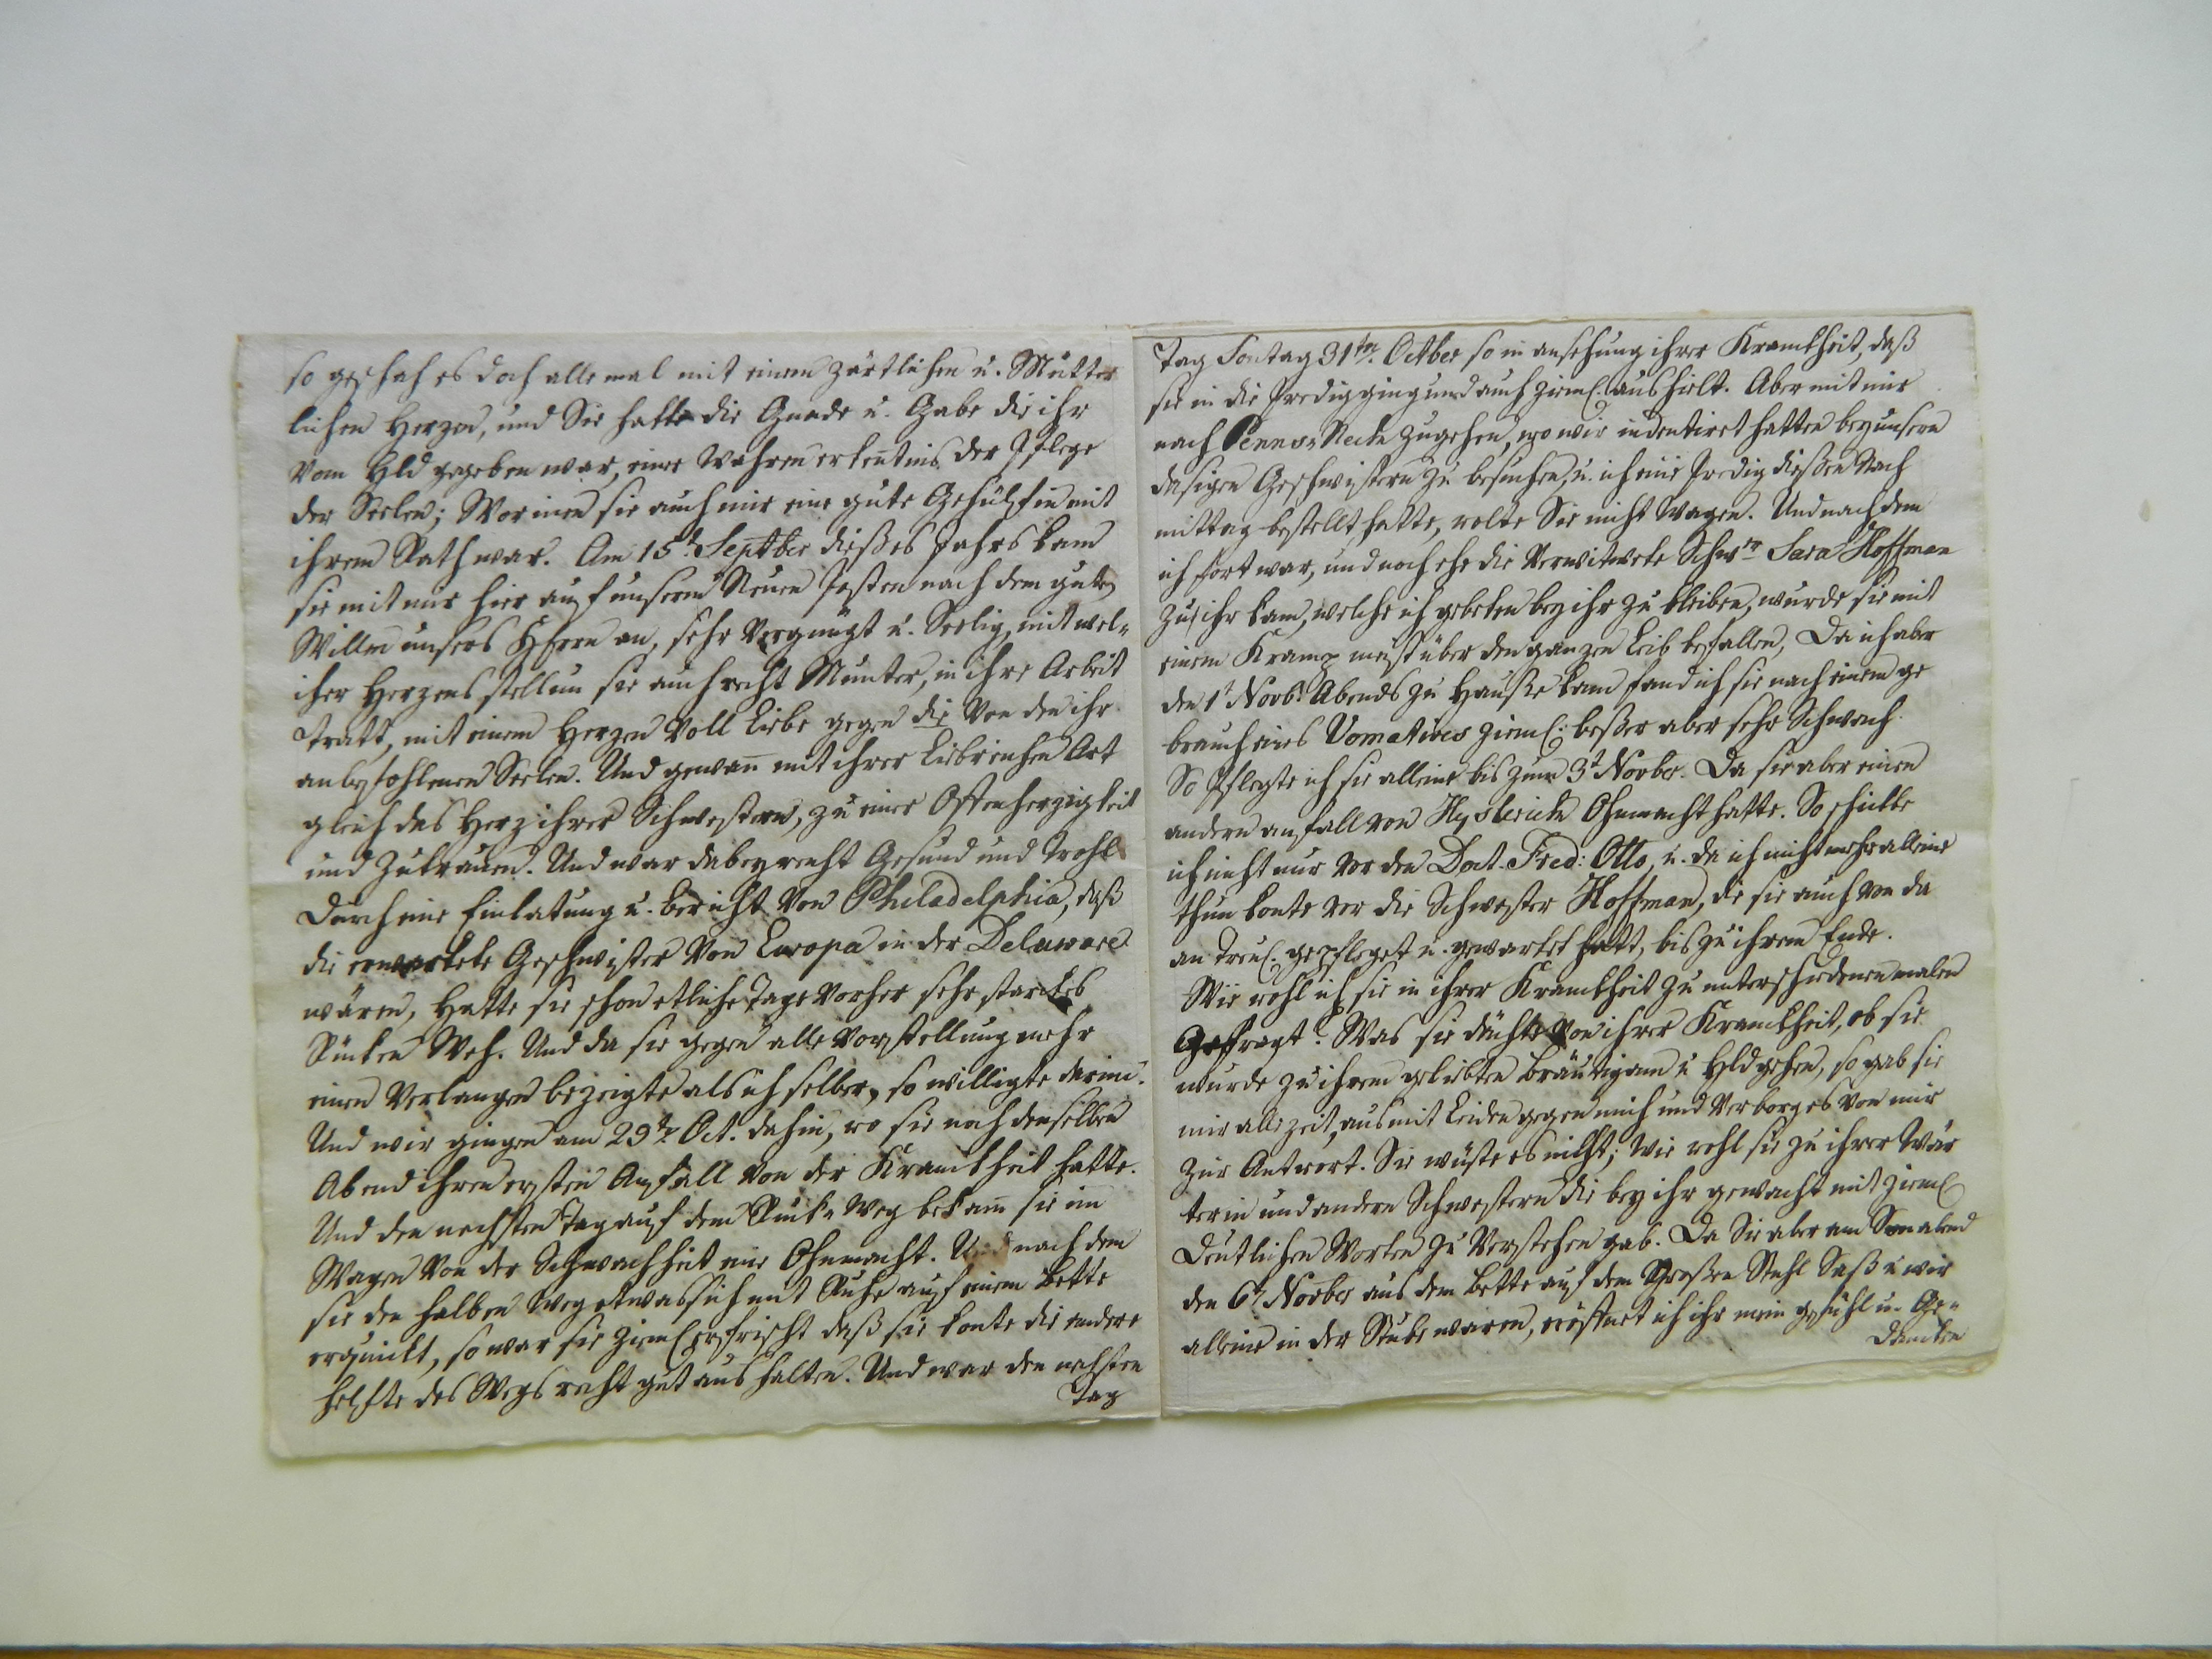 so geschah es doch alle mal mit einem zärtlichen u. Mütter
lichen Herzen, und Sie hatte die Gnade u. Gabe die ihr
vom Hld gegeben war, einer Wahren erkentnis der Pflege
der Seelen; Worinen sie auch mir eine gute Gehülfin mit
ihrem Rath war. Am 15t Septber dießes Jahrs kam
sie mit mir hier auf unserm Neuen Posten nach dem guten
Willen unsers HErrn an, sehr Vergnügt u. Seelig, mit wel-
cher Herzens stellun sie auch recht Munter, in ihre Arbeit
Tratt, mit einem Herzen Voll Liebe gegen die Von den ihr
anbefohlenen Seelen. Und gewan̄ mit ihrer Liebreichen Art
gleich das Herz ihrer Schwestern, zu einer Offenherzigkeit
und Zutrauen. Und war dabey recht Gesund und Frohl
Durch eine Einlatung u. bericht Von Philadelphia, daß
die erwartete Geschwister Von Europa in der Delaware
wären, Hatte sie schon etliche Tage Vorher sehr starckes
Rücken Weh. Und da sie gegen alle Vorstellung mehr
einen Verlangen bezeigte als ich selber, so willigte darein.
Und wir gingen am 29tn Oct. dahin, wo sie noch denselben
Abend ihren ersten Anfall Von der Kranckheit hatte.
Und den nechsten Tag auf dem Ruck-Weg bekam̄ sie im
Wagen Von der Schwachheit eine Ohnmacht. Und nach dem
sie den halben Weg etwas sich mit Ruhe auf einem Bette
erquickt, so war sie ziml. erfrischt daß sie konte die andere
helfte des Wegs recht gut aus halten. Und war den nechsten
Tag
Tag Sontag 31tn Octber so in ansehung ihrer Kranckheit, daß
sie in die Predig ging und auch ziml. aushielt. Aber mit mir
nach Penns-Neck zugehen, wo wir indentiret hatten bey unsern
dasigen Geschwistern zu besuchen, u. ich eine Predig dießen Nach
mittag bestellt hatte, wolte Sie nicht Wagen. Und nach dem
ich fort war, und noch ehe die Verwitwete Schwr Sara Hoffman
zu ihr kam, welche ich gebeten bey ihr zu bleiben, wurde sie mit
einem Kramp meist über den ganzen Leib befallen, Da ich aber
den 1t Novbr Abends zu Hauße kam fand ich sie nach einem ge
brauch eines Vomatives ziml. beßer aber sehr Schwach.
So Pflegte ich sie alleine bis zum 3t Novbr. Da sie aber einen
andern anfall von Hysterick Ohnmacht hatte. So schickte
ich nicht nur vor den Doct. Fred: Otto, u. da ich nicht mehr alleine
thun konte vor die Schwester Hoffman, die sie auch von da
an Treul. gepfleget u. gewartet hatt, bis zu ihrem Ende.
Wie wohl ich sie in ihrer Kranckheit zu unterschiedenen malen
Gefragt? Was sie dächte Von ihrer Kranckheit, ob sie
wurde zu ihrem geliebten Bräutigam u Hld gehen, so gab sie
mir allezeit, aus mit Leiden gegen mich und Verborg es von mir
zur Antwort. Sie wüste es nicht; Wie wohl sie zu ihrer Wär
terin und andern Schwestern die bey ihr gewacht mit ziml.
Deutlichen Worten zu Verstehen gab. Da Sie aber am Sonabend
den 6t Novber aus dem Bette auf dem Großen Stuhl Saß u wir
alleine in der Stube waren, eröfnet ich ihr mein gefühl u. Ge-
dancken